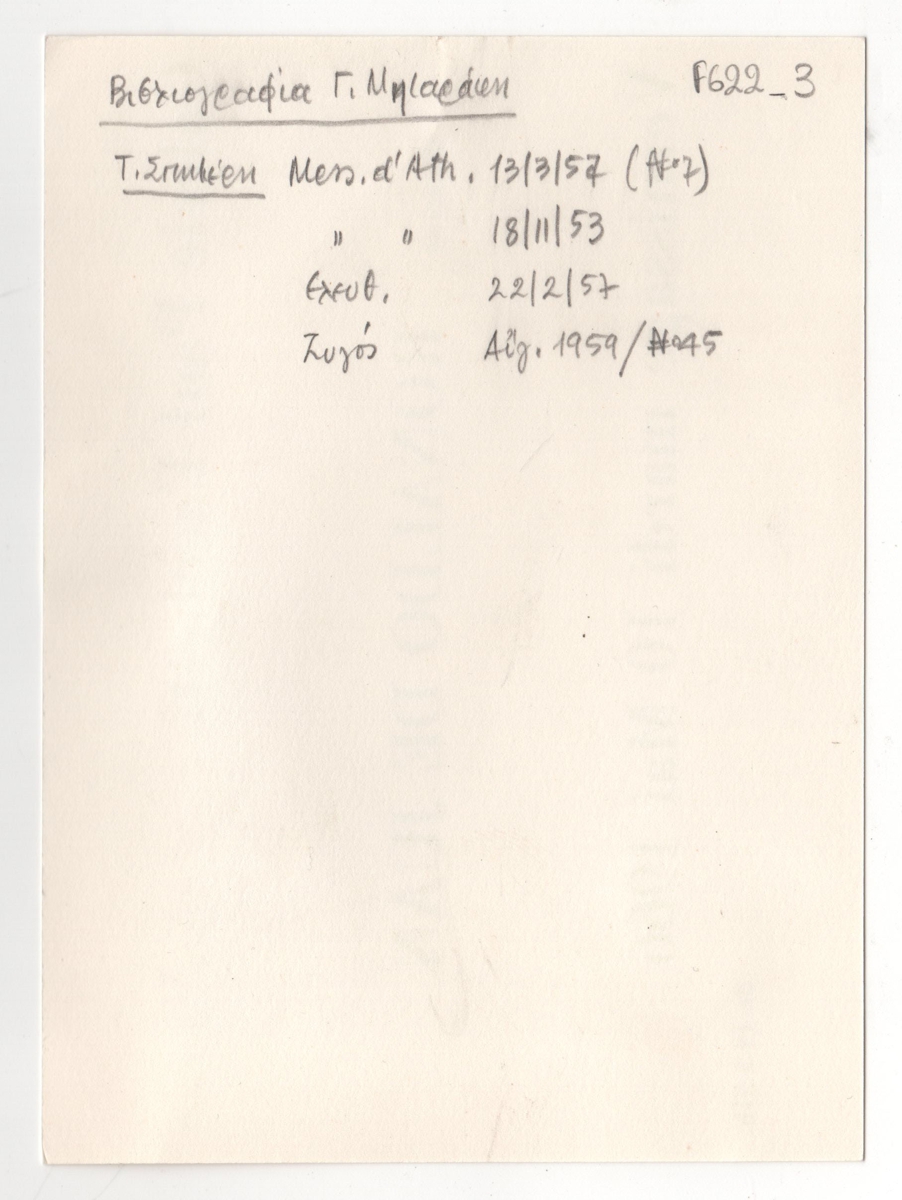 Βιβλιογραφία Γ. Μηταράκη F622_3
Τ. Σπητέρη Mess. d'Ath. 13/3/57 (No 7)
" " 18/11/53
Ελευθ. 22/2/57
Ζυγός Αὔγ. 1959/No 45